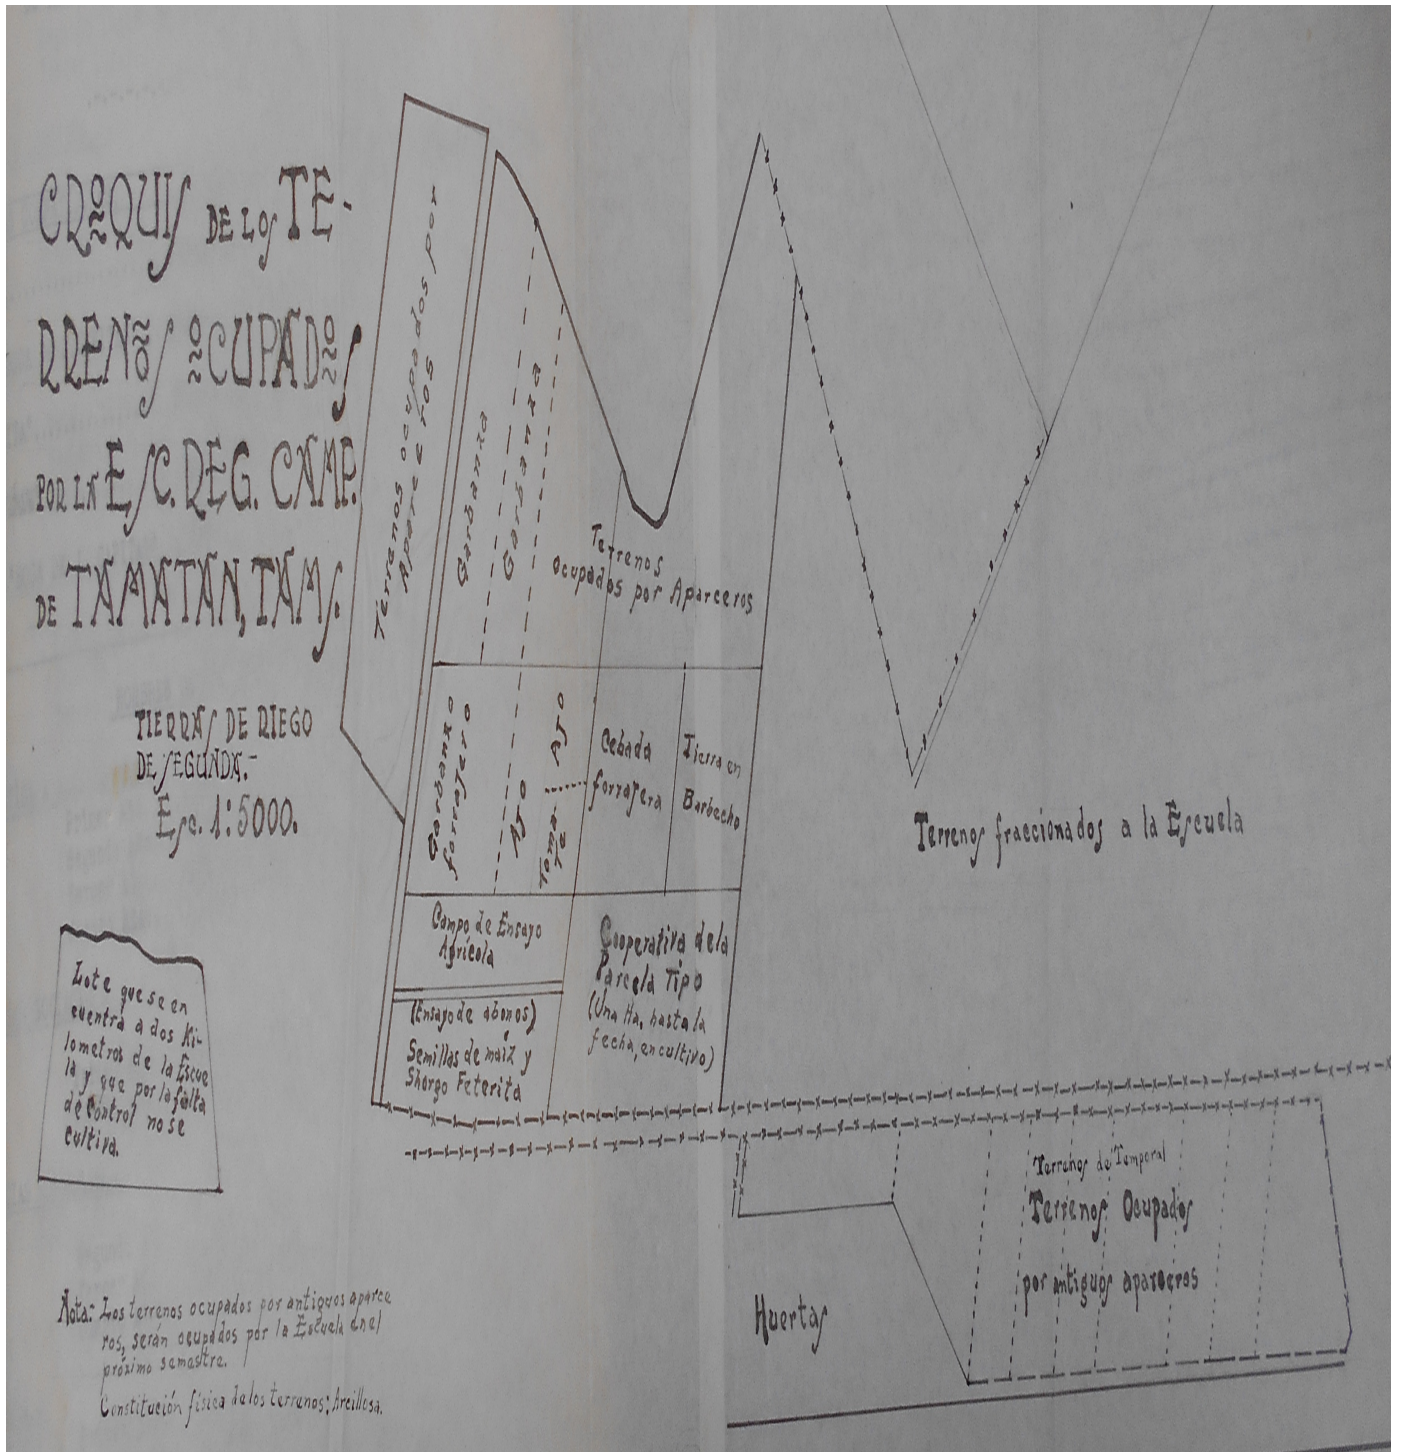 CROQUIS DE LOS TE-
RRENOS OCUPADOS
POR LA ESC. REG. CAMP.
DE TAMATAN, TAMS.
TIERRAS DE RIEGO
DE SEGUNDA.-
Esc. 1:5000.
Lote que se en
cuentra a dos Ki-
lometros de la Escue
la y que por la falta
de control no se
cultiva.
Nota: Los terrenos ocupados por antiguos aparce
ros, serán ocupados por la Escuela enel
próximo semestre.
Constitución física de los terrenos; Arcillosa.
Terrenos ocupados por
Aparceros
Garbanza
Garbanza
Terrenos
ocupados por Aparceros
Garbanzo
forrajero
Ajo
Ajo
Toma-
te
Cebada
forrajera
Tierra en
Barbecho
Campo de Ensayo
Agrícola
(Ensayo de abonos)
Semillas de maíz y
Shorgo Feterita
Cooperativa dela
Parcela Tipo
(Una Ha, hasta la
fecha, en cultivo)
Terrenos fraccionados a la Escuela
Terrenos de Temporal
Terrenos Ocupados
por antiguos aparceros
Huertas